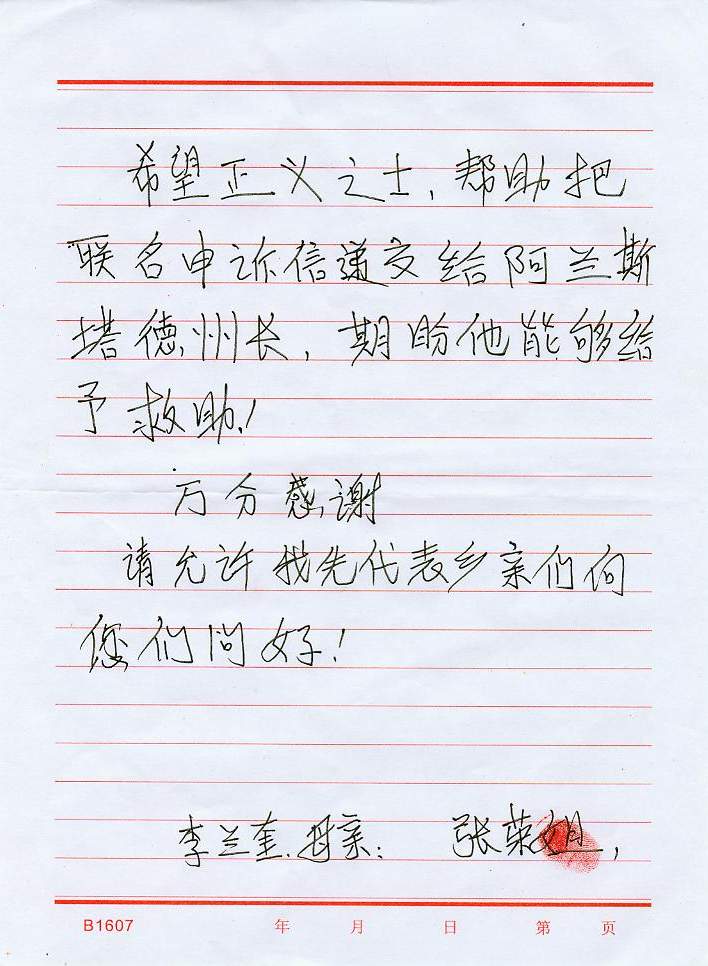 希望正义之士,帮助把
联名申诉信递交给阿兰斯
塔德州长,期盼他能够给
予救助!
万分感谢
请允许我先代表乡亲们向
您们问好!
李兰奎.母亲: 张荣姐,
B1607 年 月 日 第 页